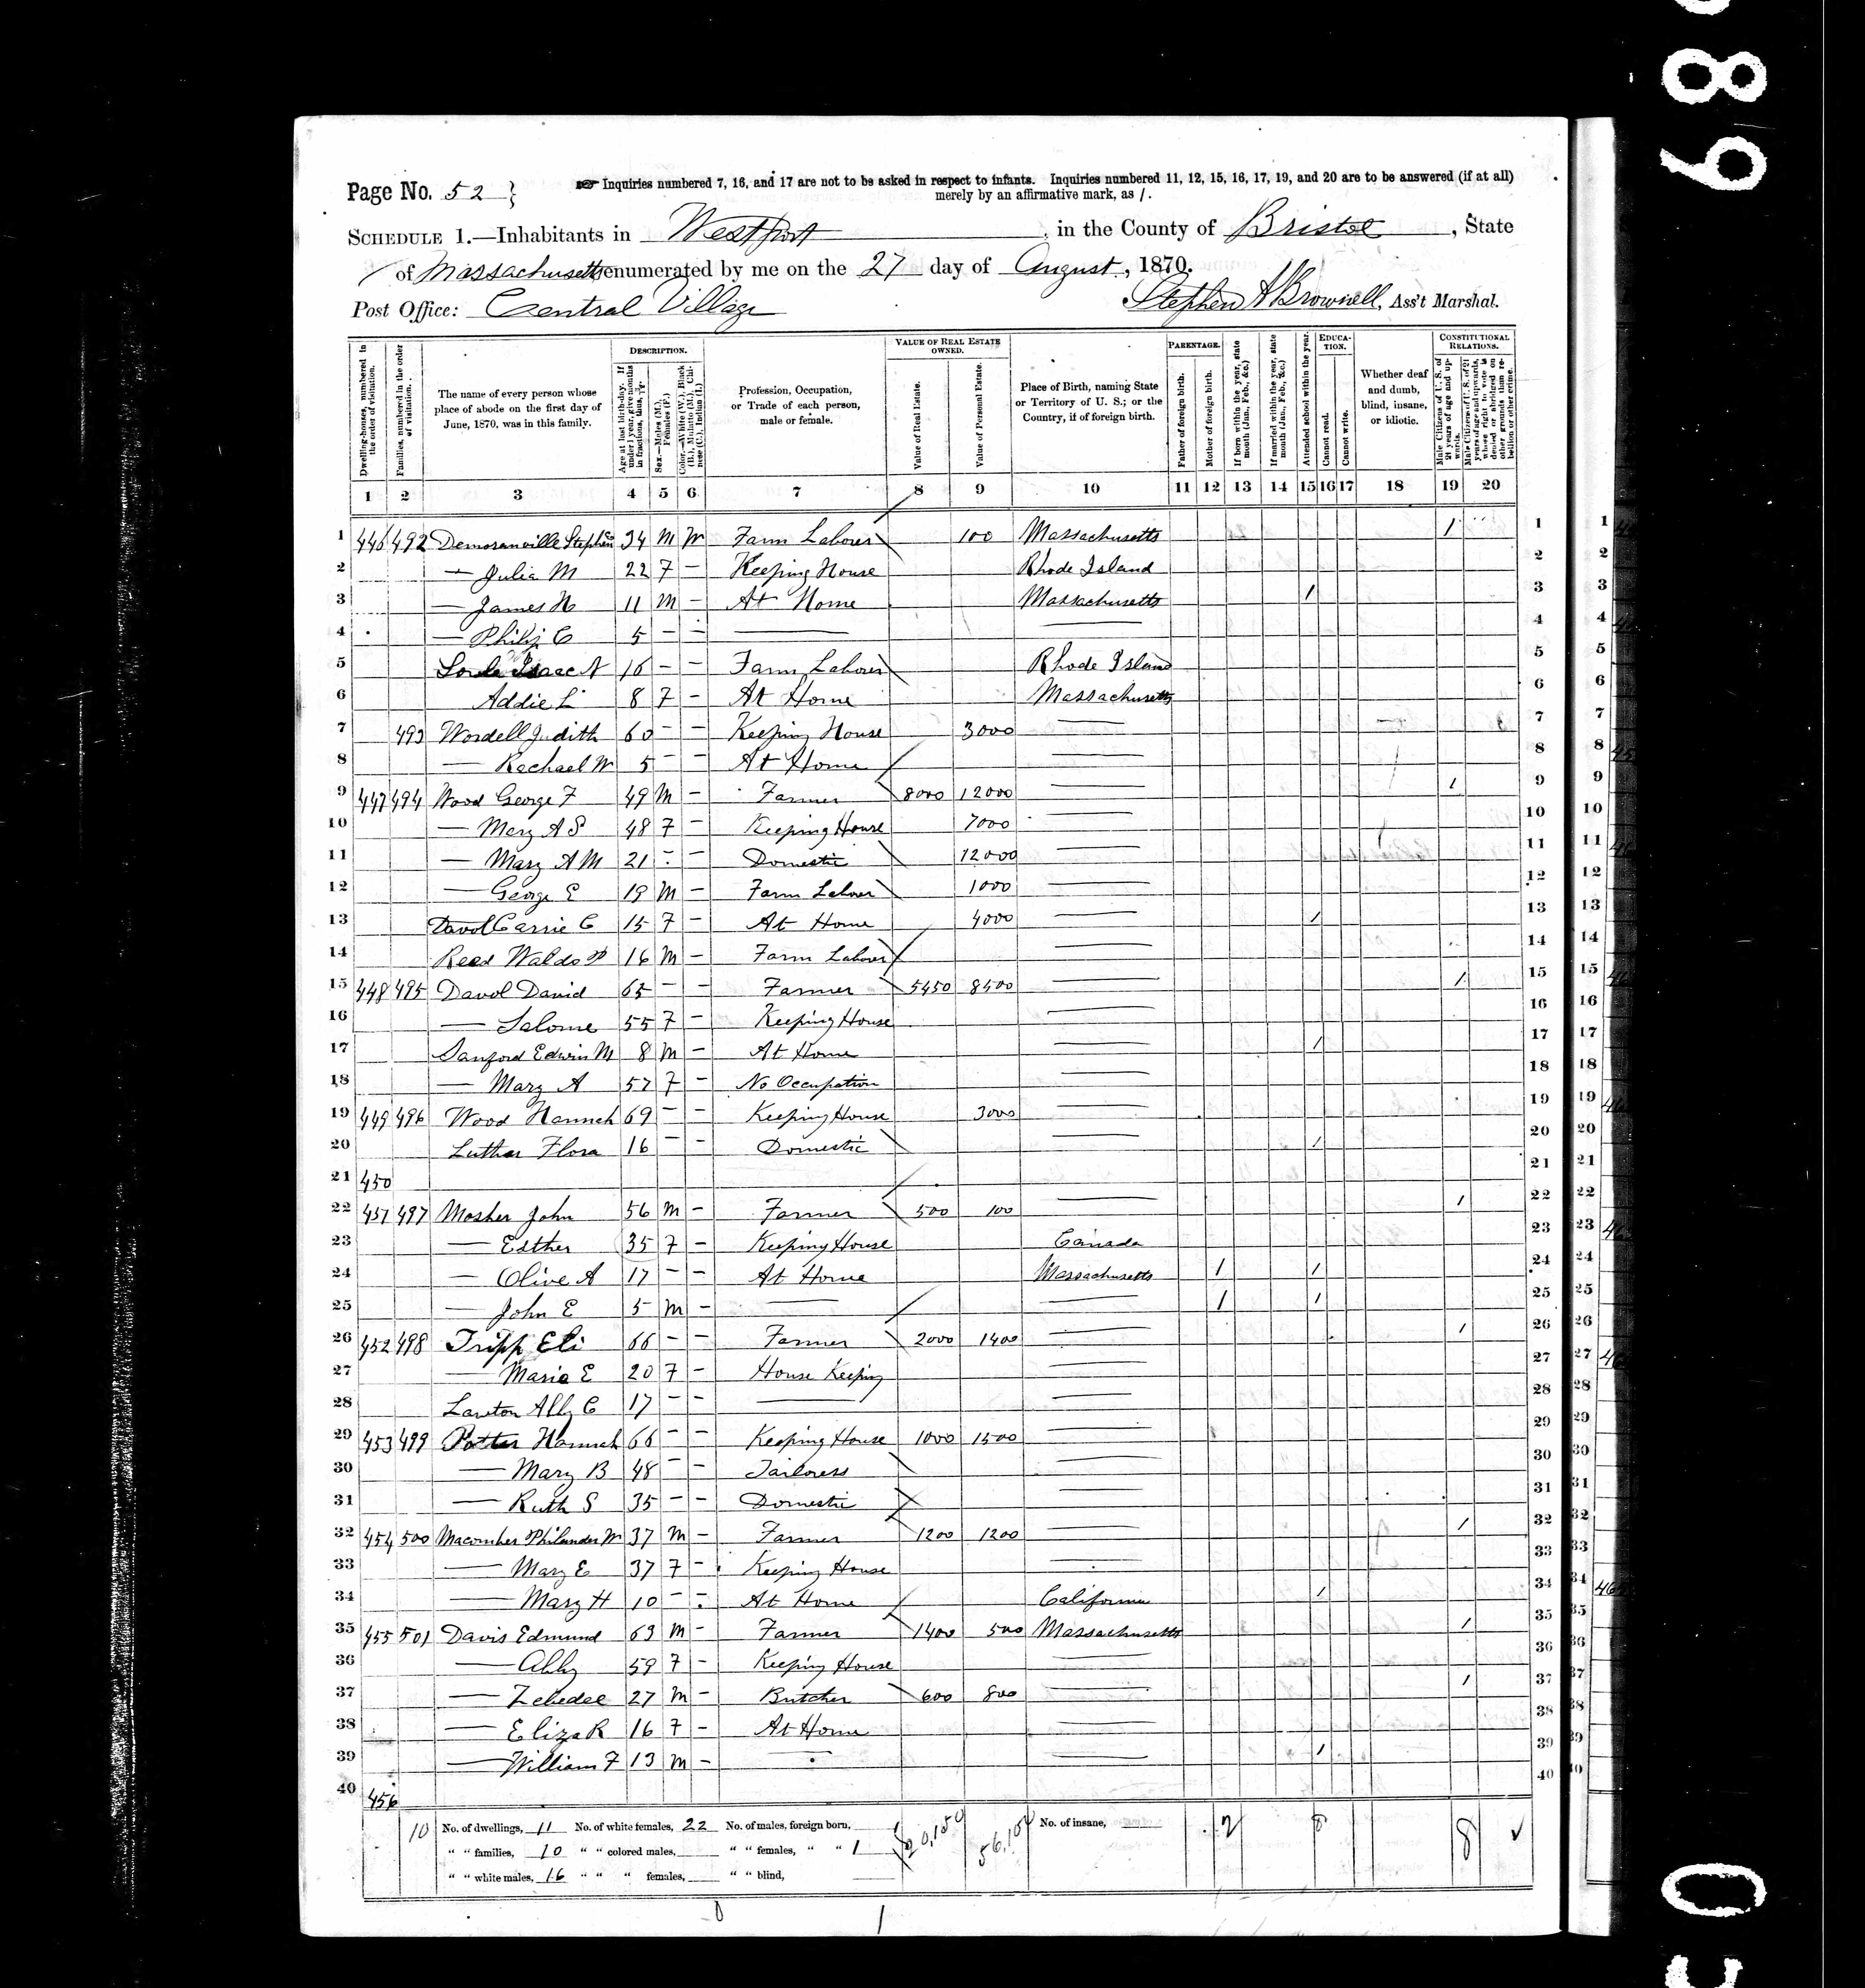 Page No. 52 } Inquiries numbered 7, 16, and 17 are not to be asked in respect to infants. Inquiries numbered 11, 12, 15, 16, 17, 19, and 20 are to be answered (if at all)
merely by an affirmative mark, as /.
SCHEDULE 1.—Inhabitants in Westport, in the County of Bristol, State
of Massachusetts enumerated by me on the 27 day of August, 1870.
Post Office: Central Village Stephen A Brownell, Ass't Marshal.
Dwelling-houses, numbered in the order of visitation.
Families, numbered in the order of visitation.
The name of every person whose place of abode on the first day of June, 1870, was in this family.
DESCRIPTION.
Age at last birth-day. If under 1 year, give months in fractions, thus,
Sex.—Males (M.), Females (F.)
Color.—White (W.), Black (B.), Mulatto (M.), Chinese (C.), Indian (I.)
Profession, Occupation, or Trade of each person, male or female.
VALUE OF REAL ESTATE OWNED.
Value of Real Estate.
Value of Personal Estate.
Place of Birth, naming State or Territory of U. S.; or the Country, if of foreign birth.
PARENTAGE.
Father of foreign birth.
Mother of foreign birth.
If born within the year, state month (Jan., Feb., &c.)
If married within the year, state month (Jan., Feb., &c.)
Attended school within the year.
EDUCATION.
Cannot read.
Cannot write.
Whether deaf and dumb, blind, insane, or idiotic.
CONSTITUTIONAL RELATIONS.
Male Citizens of U. S. of 21 years of age and upwards.
Male Citizens of U. S. of 21 years of age and upwards, whose right to vote is denied or abridged on other grounds than rebellion or other crime.
1 2 3 4 5 6 7 8 9 10 11 12 13 14 15 16 17 18 19 20
1 446 492 Demoranville Stephen 34 M W Farm Laborer 100 Massachusetts / 1
2 — Julia M 22 F – Keeping House Rhode Island 2
3 — James H 11 M – At Home Massachusetts / 3
4 — Philip C 5 – – — — 4
5 Isaac N 16 – – Farm Laborer Rhode Island 5
6 Addie L 8 F – At Home Massachusetts 6
7 493 Wordell Judith 60 – – Keeping House 3000 — 7
8 — Rachael W 5 – – At Home — 8
9 447 494 Wood George F 49 M – Farmer 8000 12000 — / 9
10 — Mary A S 48 F – Keeping House 7000 — 10
11 — Mary A M 21 – – Domestic 12000 — 11
12 — George E 19 M – Farm Labor 1000 — 12
13 Davol Carrie C 15 F – At Home 4000 — / 13
14 Reed Waldo P 16 M – Farm Laborer — 14
15 448 495 Davol David 65 – – Farmer 5450 8500 — / 15
16 — Salome 55 F – Keeping House — 16
17 Sanford Edwin M 8 M – At Home — / 17
18 — Mary A 57 F – No Occupation — 18
19 449 496 Wood Hannah 69 – – Keeping House 3000 — 19
20 Luther Flora 16 – – Domestic — / 20
21 450 21
22 451 497 Mosher John 56 M – Farmer 500 100 — / 22
23 — Esther 35 F – Keeping House Canada 23
24 — Olive A 17 – – At Home Massachusetts / / 24
25 — John E 5 M – — — / / 25
26 452 498 Tripp Eli 66 – – Farmer 2000 1400 — / 26
27 — Maria E 20 F – House Keeping — 27
28 Lawton Abby C 17 – – — — 28
29 453 499 Potter Hannah 66 – – Keeping House 1000 1500 — 29
30 — Mary B 48 – – Tailoress — 30
31 — Ruth S 35 – – Domestic — 31
32 454 500 Macomber Philander W 37 M – Farmer 1200 1200 — / 32
33 — Mary E 37 F – Keeping House — 33
34 — Mary H 10 – – At Home California / 34
35 455 501 Davis Edmund 63 M – Farmer 1400 500 Massachusetts / 35
36 — Abby 59 F – Keeping House — 36
37 — Zebedee 27 M – Butcher 600 800 — / 37
38 — Eliza R 16 F – At Home — 38
39 — William F 13 M – — — / 39
40 456 40
10 No. of dwellings, 11 No. of white females, 22 No. of males, foreign born, 20,150 56,100 No. of insane, 2 8 8 ✓
" " families, 10 " " colored males, " " females, " " 1
" " white males, 16 " " " females, " " blind,